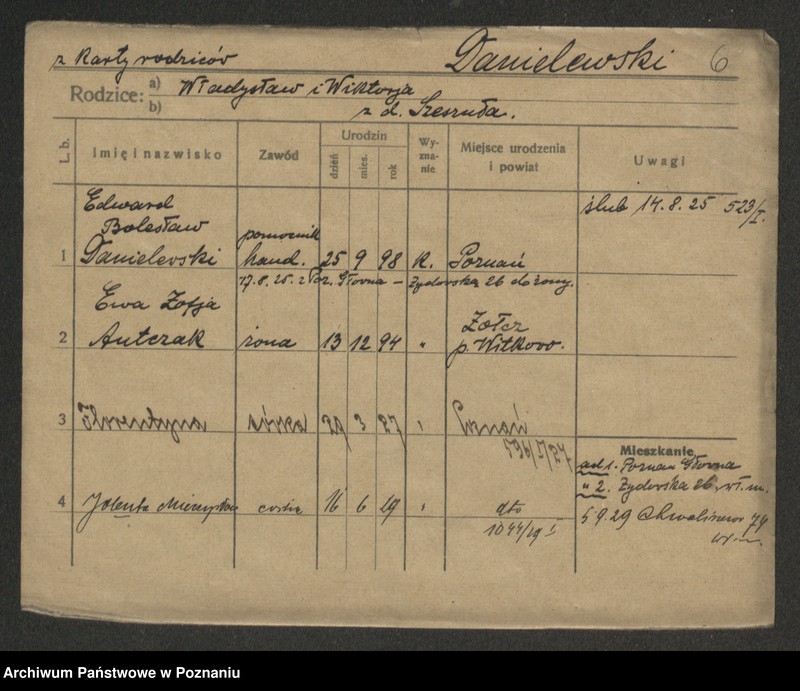 z Karty rodziców
Danielewski 6
Rodzice: a) Władysław i Wiktorja
b) z d. Szeszuła.
L. b. Imię i nazwisko Zawód Urodzin dzień mies. rok Wy-zna-nie Miejsce urodzenia i powiat Uwagi
Edward
Bolesław
ślub 14.8.25 523/I.
pomocnik
1 Danielewski hand. 25 9 98 K. Poznań
17.8.25. z Poz. Głovna – Zydovska 26 do żony.
Ewa Zofja
Zołcz
2 Antczak żona 13 12 94 " p. Witkovo.
3 Florentyna córka 29 3 27 " Poznań
596/I/27
Mieszkanie
ad 1. Poznan Głovna
" 2. Zydovska 26, wł. m.
4 Jolenta córka 16 6 29 " dto
1044/29 I
5 9.29 Chwaliszewo 74
Archiwum Państwowe w Poznaniu